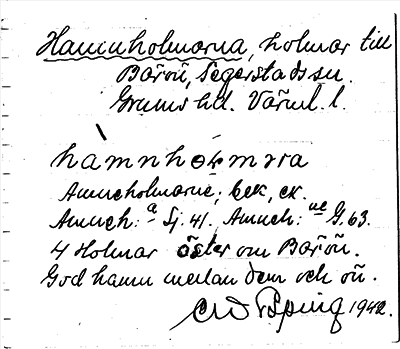 Hamnholmarna, holmar till
Barön, Segerstads sn.
Grums hd. Värml. l.
hamnhɷmrra
Amneholmarne, bek, ek.
Amneh: a Sj. 41. Amneh: ne G. 63.
4 Holmar öster om Barön.
God hamn mellan dem och ön.
1942.